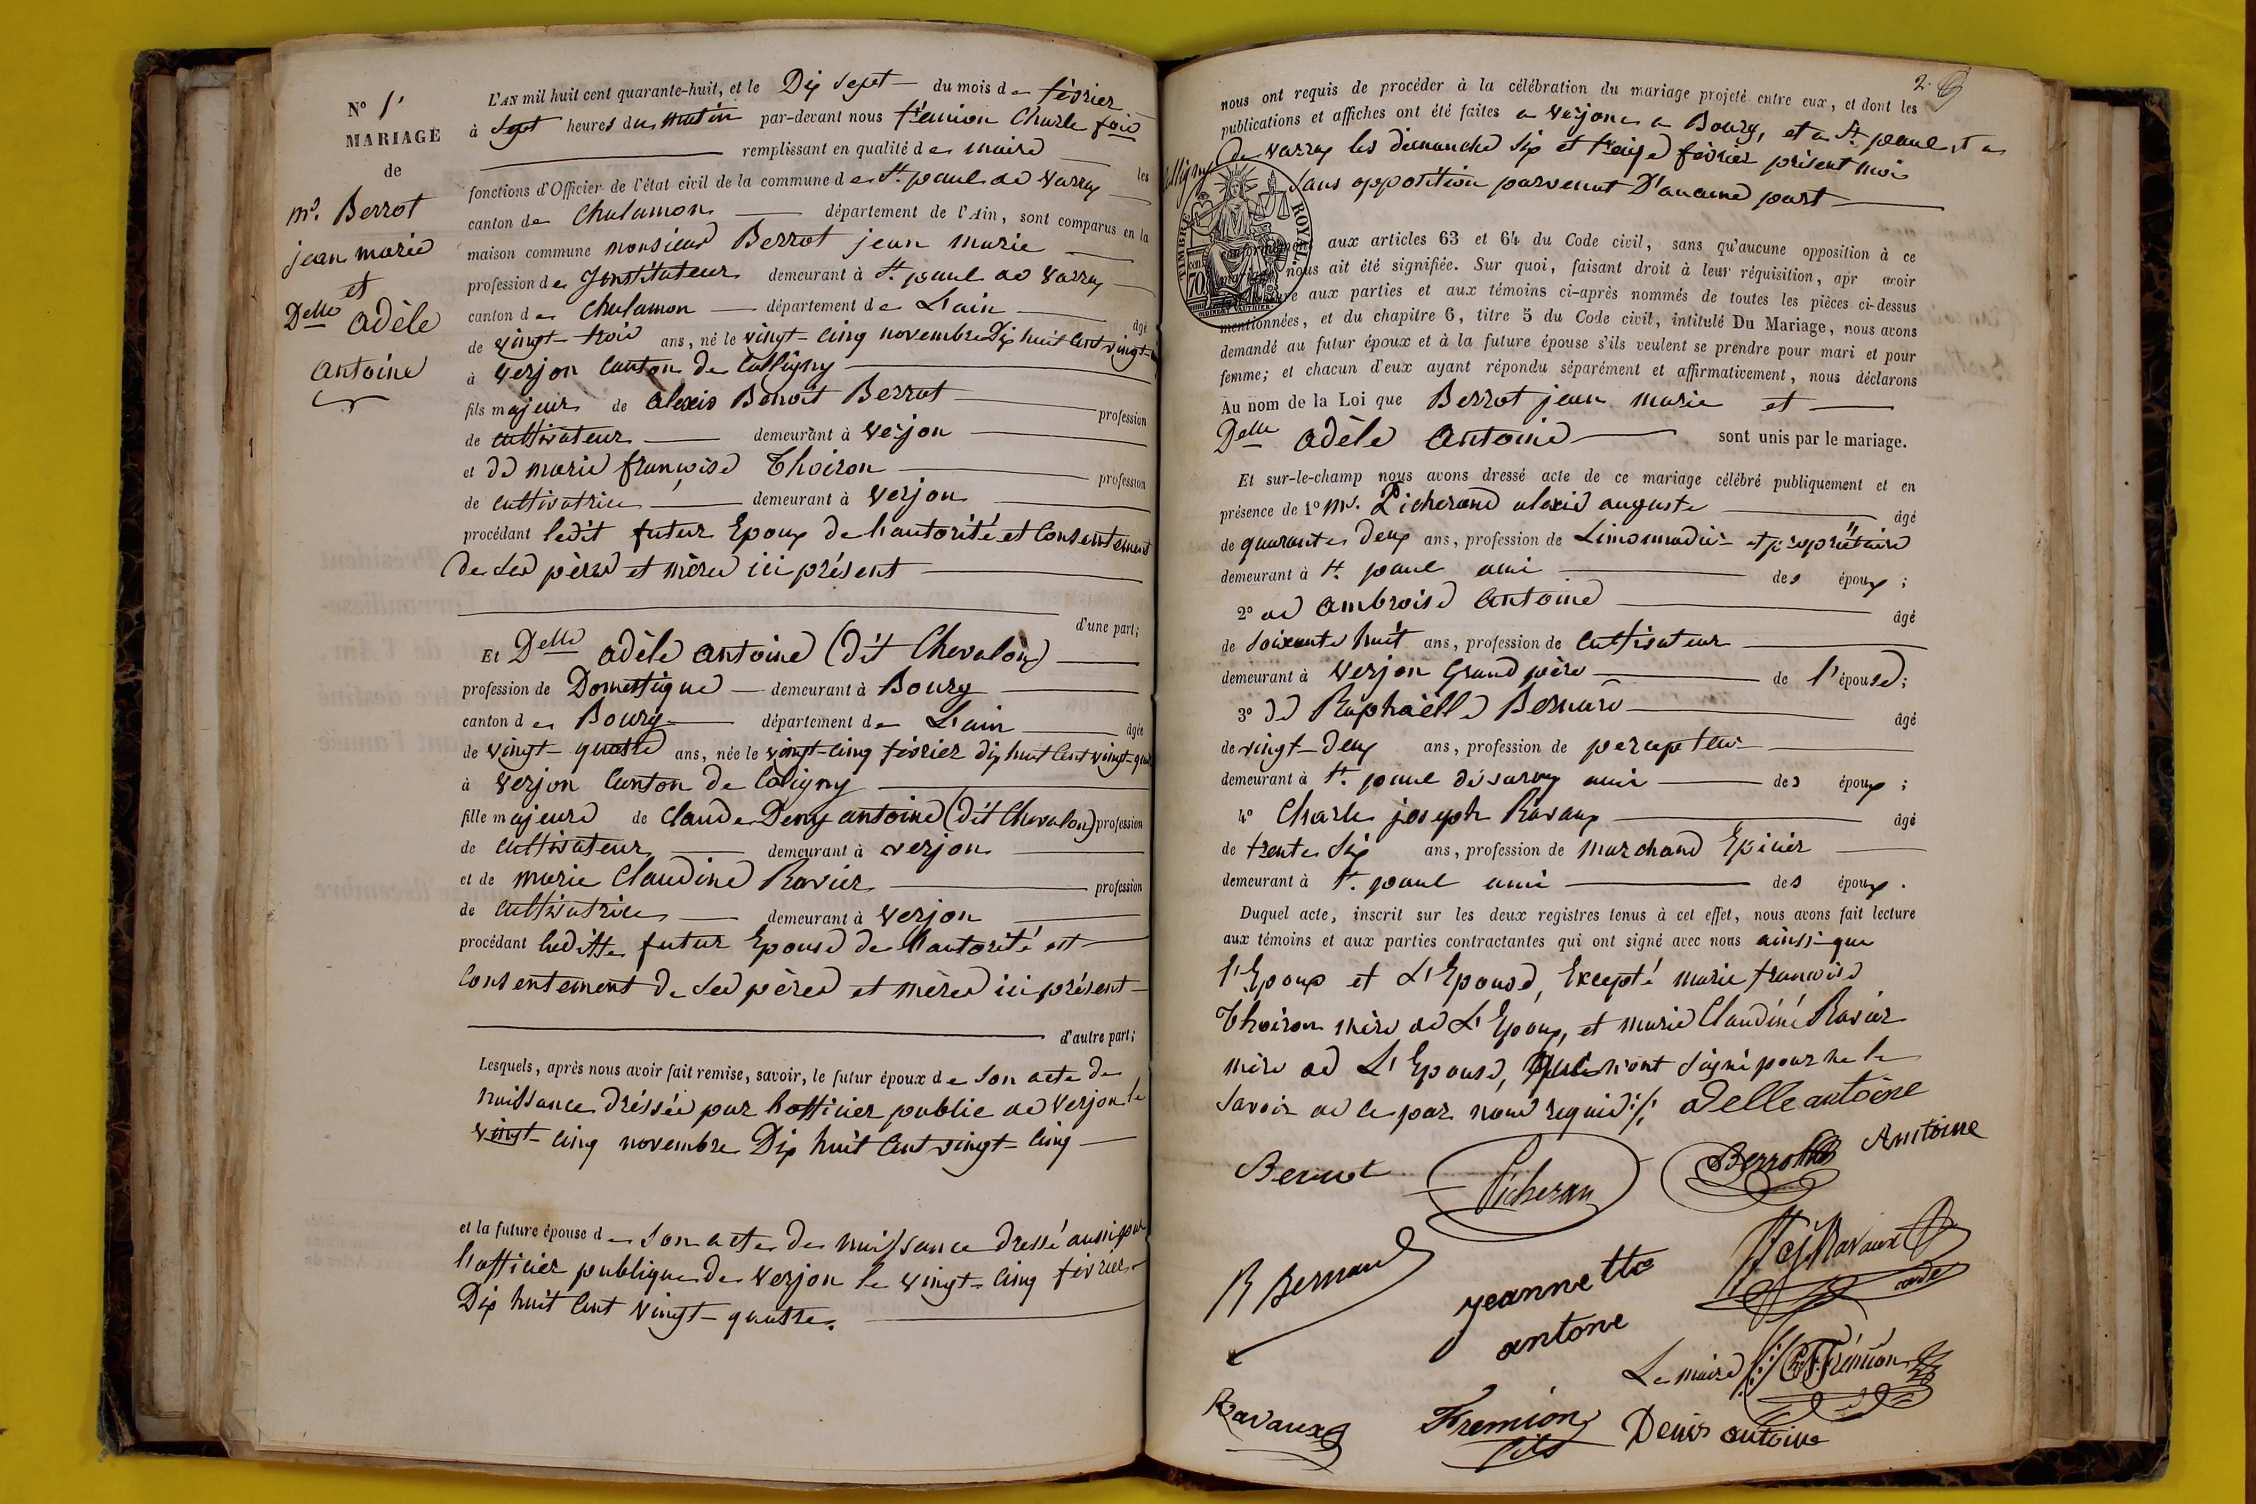 N° 1er
MARIAGE
de
Mr. Berrot
jean marie
et
Delle adèle
antoine
L'AN mil huit cent quarante-huit, et le Dix sept du mois de février
à sept heures du matin par-devant nous frémion Charle fois
remplissant en qualité de maire les
fonctions d'Officier de l'état civil de la commune de St. paul de varax
canton de Chalamon département de l'Ain, sont comparus en la
maison commune monsieur Berrot jean marie
profession de Institateur demeurant à St. paul de varax
canton de Chalamon département de L'ain âgé
de vingt-trois ans, né le vingt-cinq novembre Dix huit cent vingt-
à verjon canton de Colligny
fils majeur de alexis Benoit Berrot profession
de cultivateur demeurant à verjon
et de marie françoise Thoiron profession
de cultivatrice demeurant à verjon
procédant ledit futur Epoux de l'autorité et Consentement
de ses pères et mères ici présent
d'une part;
Et Delle adèle antoine (dit Chevalon)
profession de Domestique demeurant à Bourg
canton de Bourg département de L'ain âgée
de vingt-quatre ans, née le vingt-cinq février dix huit cent vingt-qua
à verjon canton de Coligny
fille majeure de Claude Deny antoine (dit Chevalon) profession
de cultivateur demeurant à verjon
et de marie Claudine Ravier profession
de cultivatrice demeurant à verjon
procédant laditte futur Epouse de l'autorité et
Consentement de ses pères et mères ici présent
d'autre part;
Lesquels, après nous avoir fait remise, savoir, le futur époux de son acte de
naissance dréssée par l'officier public de verjon le
vingt-cinq novembre Dix huit cent vingt-cinq
et la future épouse de son acte de naissance dressé aussi par
l'officier publique de verjon le vingt-cinq février
Dix huit cent vingt-quatre.
2.
nous ont requis de procéder à la célébration du mariage projeté entre eux, et dont les
publications et affiches ont été faites a verjon a Bourg, et a St. paul et a
Colligny de varax les dimanche six et treize février présent mois
sans opposition parvenut D'aucune part
TIMBRE ROYAL.
70
conformément aux articles 63 et 64 du Code civil, sans qu'aucune opposition à ce
mariage nous ait été signifiée. Sur quoi, faisant droit à leur réquisition, apr avoir
lecture aux parties et aux témoins ci-après nommés de toutes les pièces ci-dessus
mentionnées, et du chapitre 6, titre 5 du Code civil, intitulé Du Mariage, nous avons
demandé au futur époux et à la future épouse s'ils veulent se prendre pour mari et pour
femme; et chacun d'eux ayant répondu séparément et affirmativement, nous déclarons
Au nom de la Loi que Berrot jean marie et
Delle adèle antoine sont unis par le mariage.
Et sur-le-champ nous avons dressé acte de ce mariage célébré publiquement et en
présence de 1° Mr. Picherand alexis auguste âgé
de quarante deux ans, profession de Limonnadier et propriétaire
demeurant à St. paul ami des époux;
2° de ambroise antoine âgé
de soixante huit ans, profession de cultivateur
demeurant à verjon Grand père de l'épouse;
3° de Raphaëlle Bernard âgé
de vingt-deux ans, profession de percepteur
demeurant à St. paul de varax ami des époux;
4° Charle joseph Ravaux âgé
de trente six ans, profession de marchand Epicier
demeurant à St. paul ami des époux.
Duquel acte, inscrit sur les deux registres tenus à cet effet, nous avons fait lecture
aux témoins et aux parties contractantes qui ont signé avec nous ainsi que
l'Epoux et L'Epouse, Excepté marie francoise
Thoiron mère de L'Epoux, et marie Claudine Ravier
mère de L'Epouse, qui n'ont signé pour ne le
savoir de ce par nous requis. adelle antoine
Berrot Picheran Berrot Antoine
R Bernard jeannette antone fcj Ravaux
Le maire Ch F Frémion
Ravaux Fremion fils Denis antoine